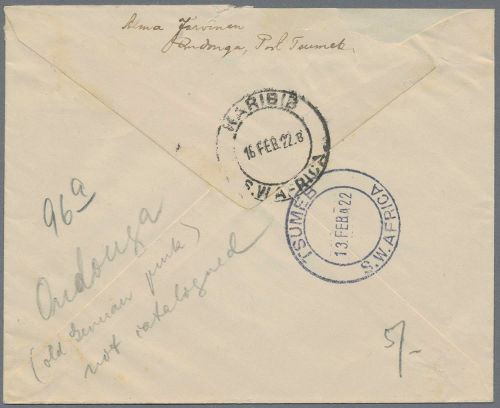 Alma Järvinen
Ondonga, Post Tsumeb.
KARIBIB
16 FEB.22.8
S.W AFRICA
TSUMEB
13 FEB 22
S.W.AFRICA
96a
Ondonga
(old German pmk)
not catalogued
5/-